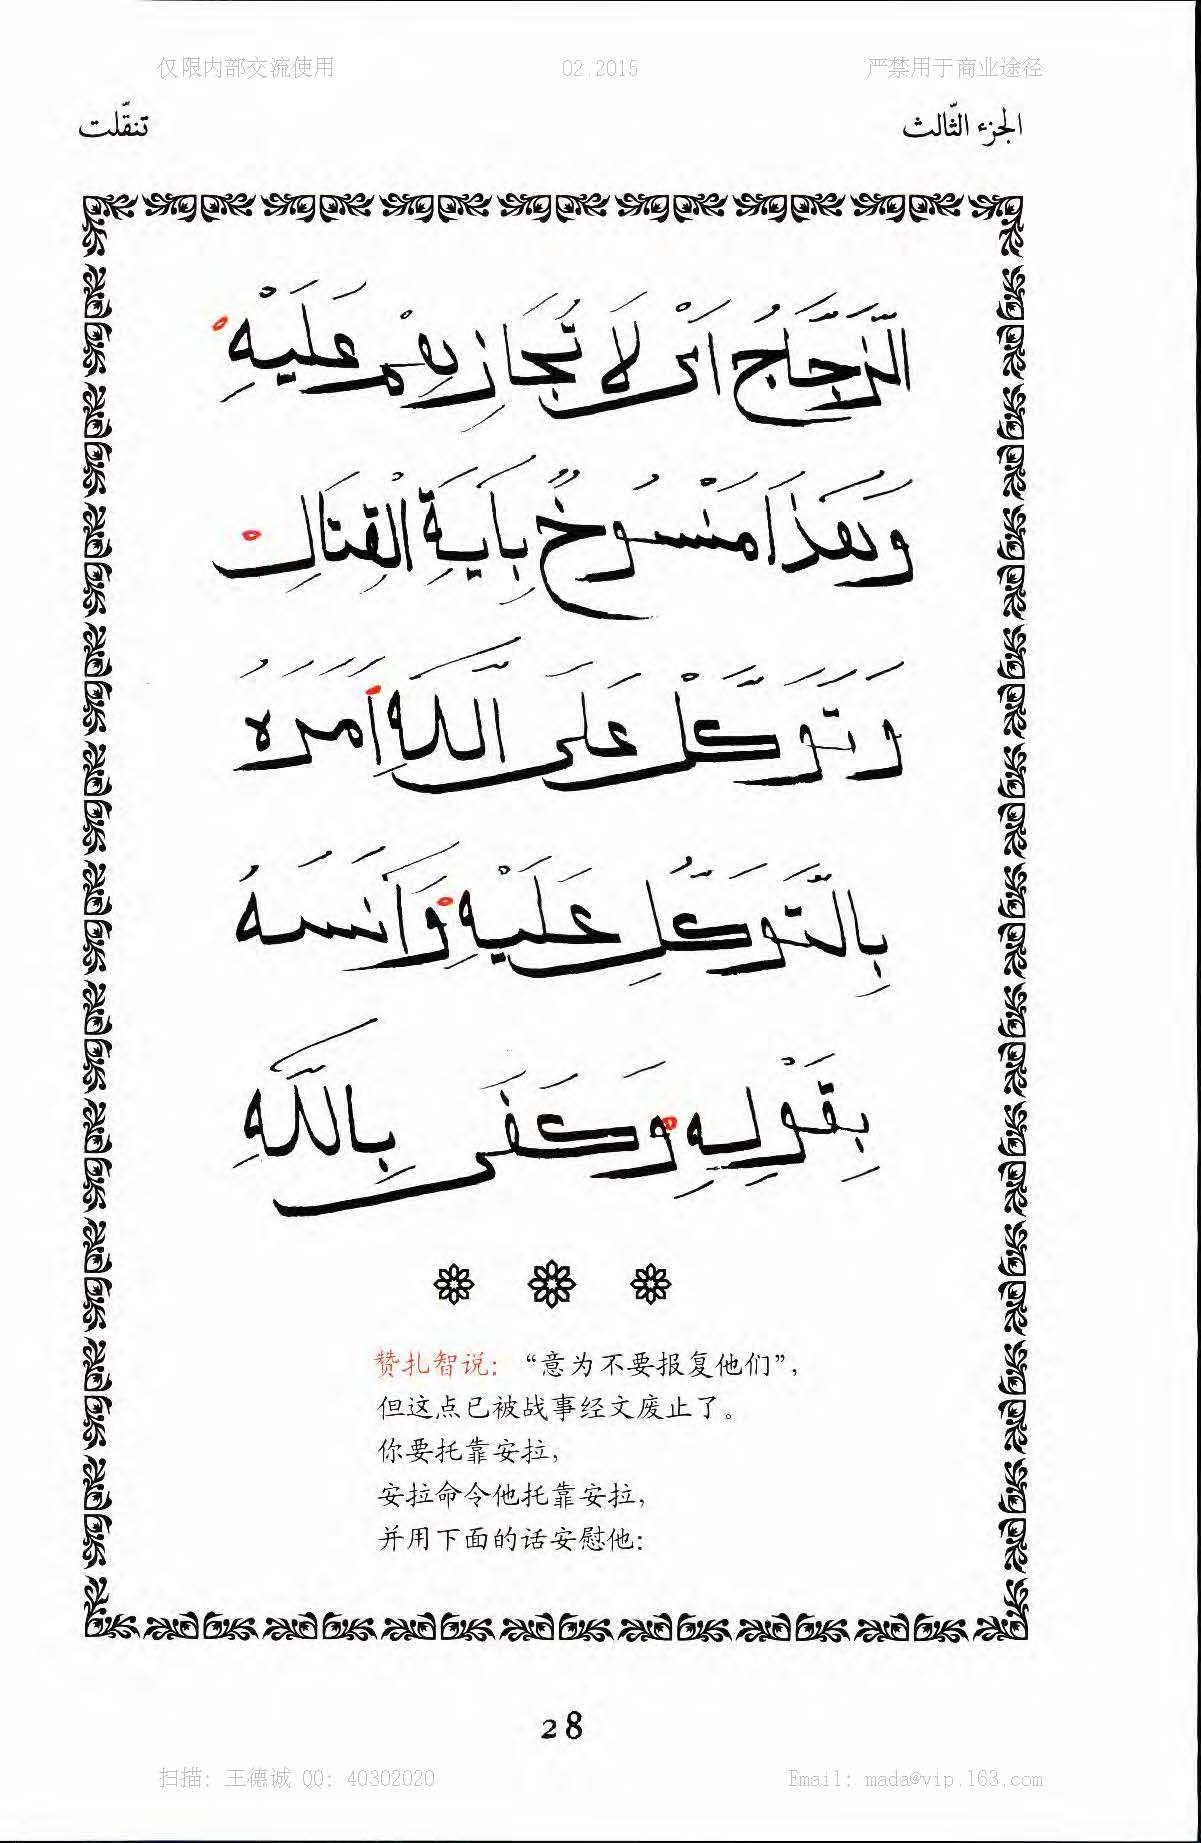 仅限内部交流使用 02.2015 严禁用于商业途径
الجزء الثّالث تنقّلت
الزَّجَّاجُ اَىْ لَا تُجَازِيهِمْ عَلَيْهِ
وَهَذَا مَنْسُوخٌ بِاَيَةِ الْقِتَالِ
وَتَوَكَّلْ عَلَى اللَّهِ اَمَرَهُ
بِالتَّوَكُّلِ عَلَيْهِ وَاَنَسَهُ
بِقَوْلِهِ وَكَفَى بِاللَّهِ
赞扎智说：“意为不要报复他们”，
但这点已被战事经文废止了。
你要托靠安拉，
安拉命令他托靠安拉，
并用下面的话安慰他：
28
扫描: 王德诚 QQ: 40302020 Email: mada@vip.163.com